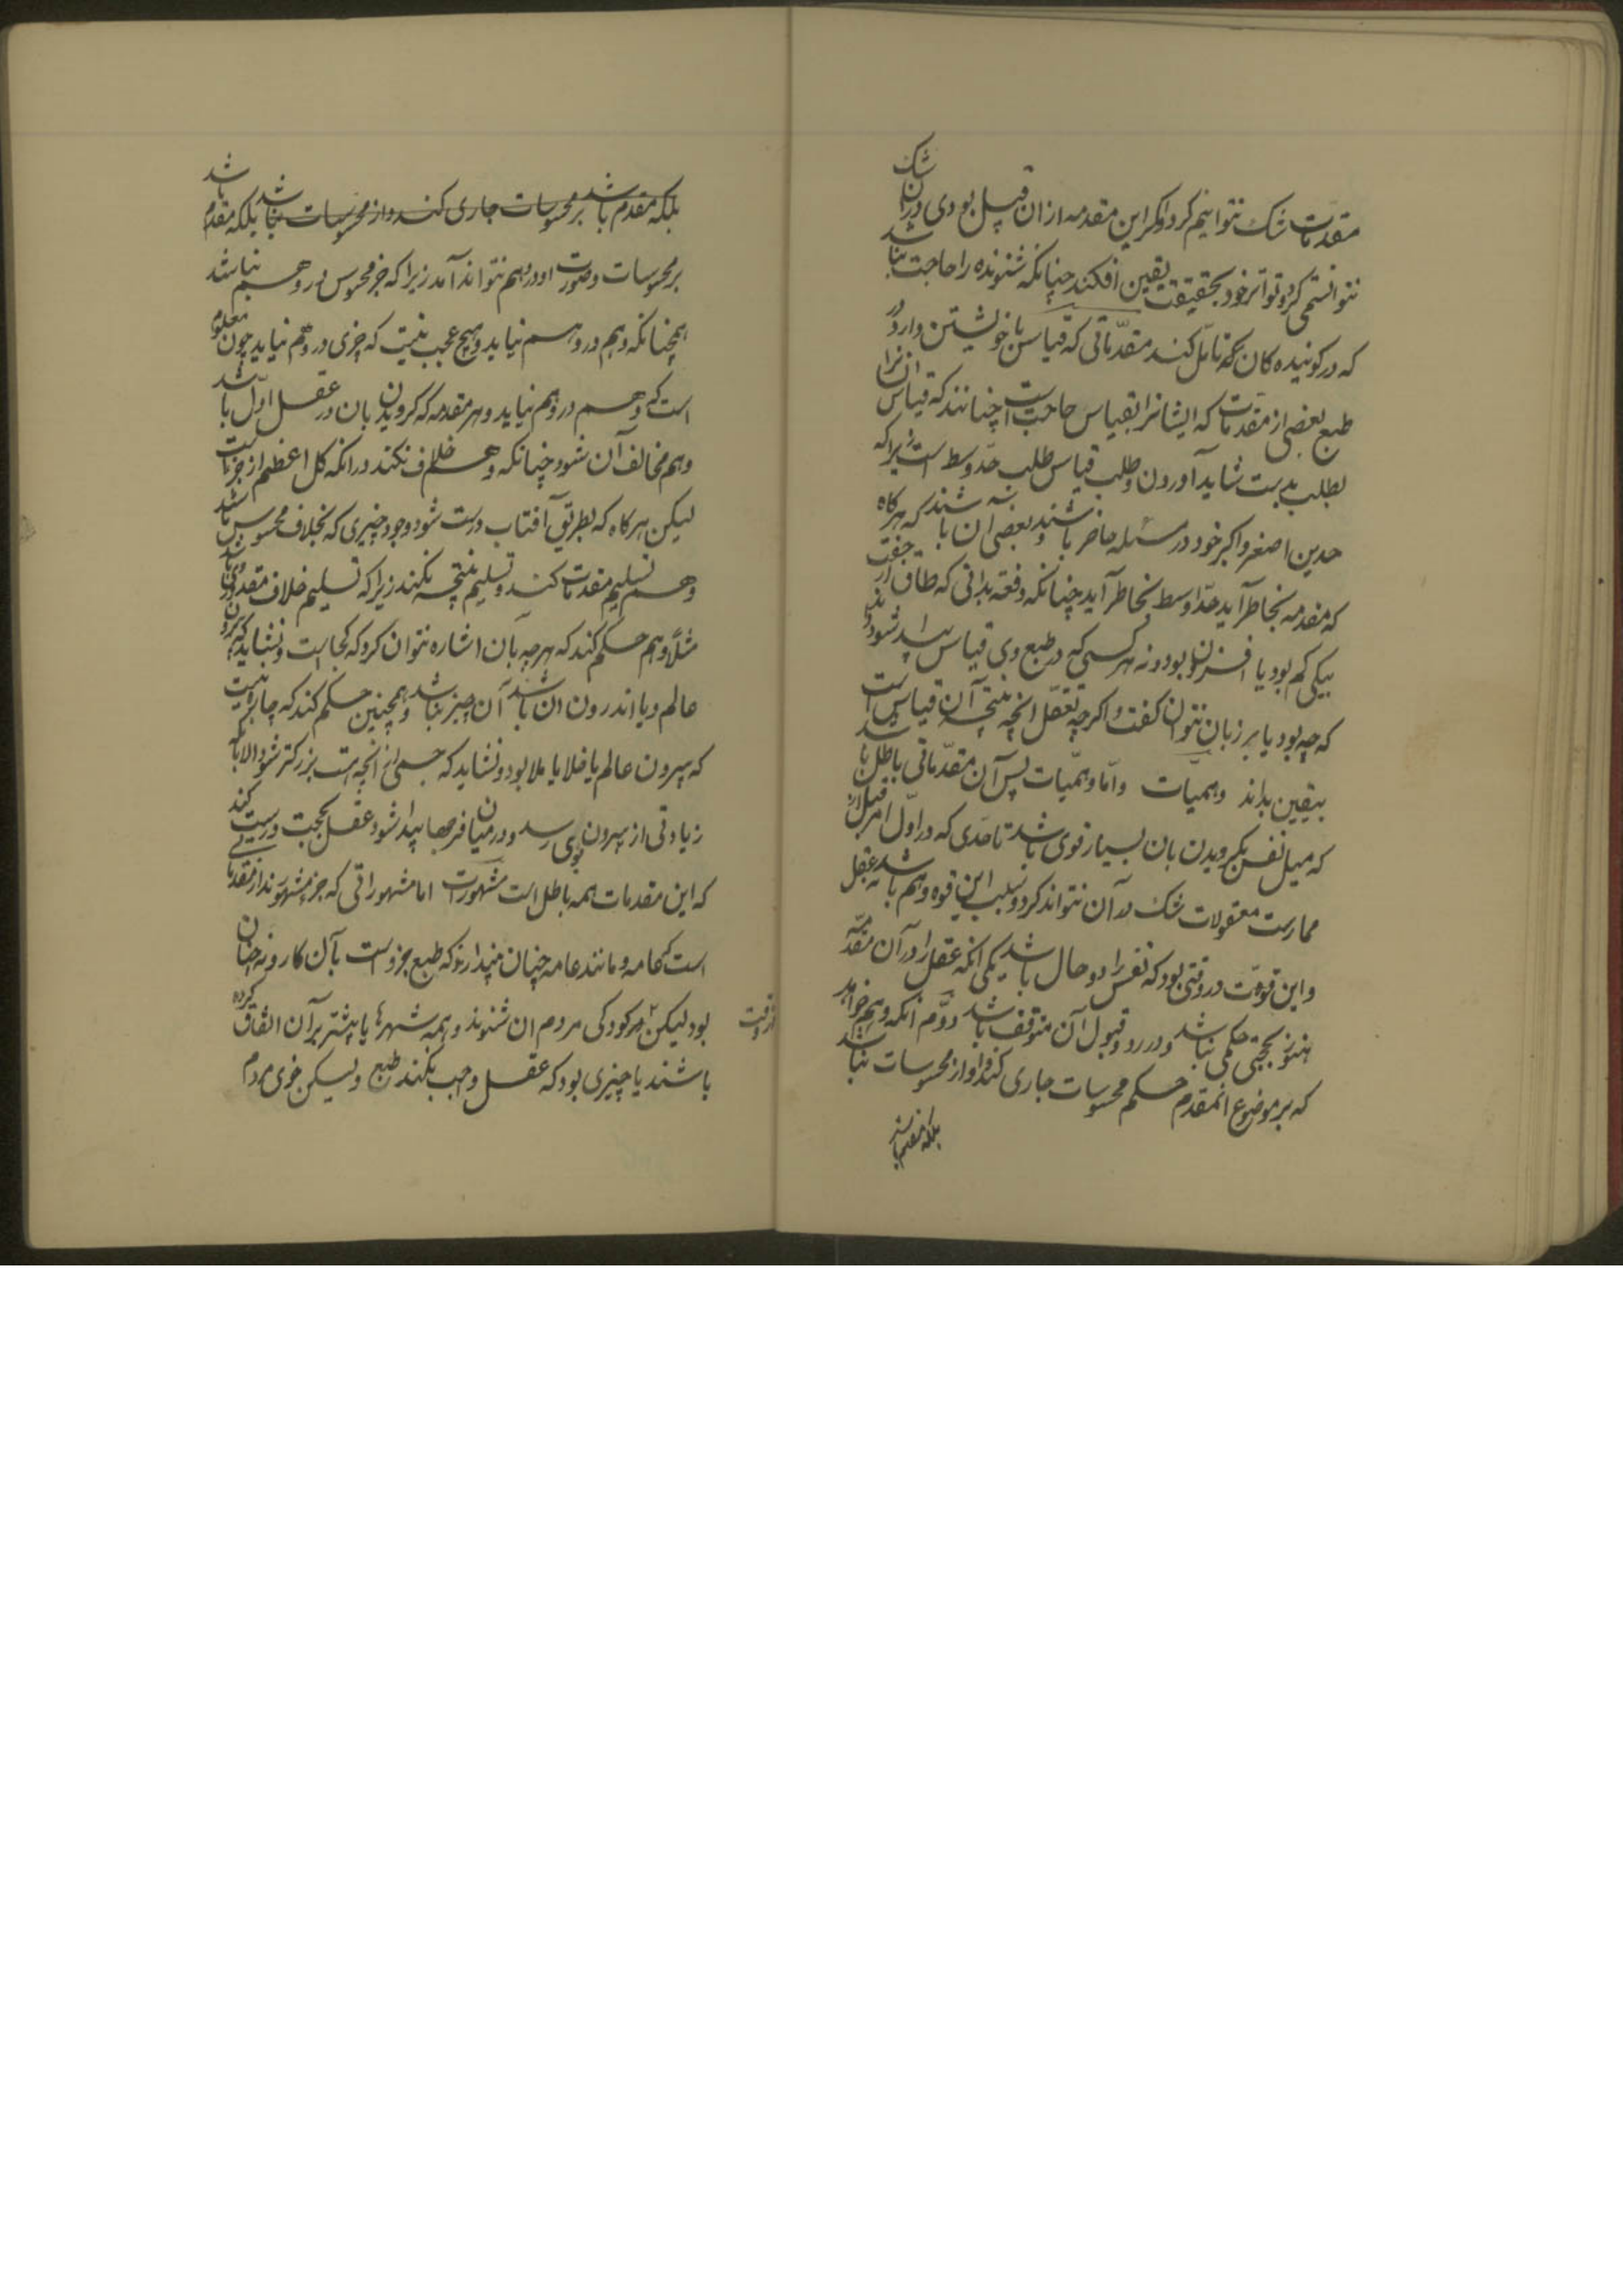 مقدمات شک نتوانیم کرد و اگر این مقدمه از ان قبیل بودی در ان شک
نتوانستمی کرد و تواتر خود بحقیقت یقین افکند چنانکه شنونده را حاجت نباشد
که در گوینده کان تامّل کند مقدّماتی که قیاس با خویشتن دارد در
طبع بعضی از مقدمات که ایشانرا بقیاس حاجت است چنانند که قیاس انرا
بطلب بدست شاید آوردن و طلب قیاس طلب حدّ وسط است زیرا که
حدین اصغر و اکبر خود در مسئله حاضر باشند و بعضی ان باشند که هرکاه
که مقدمه بخاطر آید حدّ اوسط بخاطر آید چنانکه دفعة بدانی که طاق از جفت
بیکی کم بود یا افزون بود و نه هرکسی که در طبع وی قیاس پیدا شود
که چه بود یا بر زبان نتوان کفت و اکرچه تعقّل انچه نتیجه آن قیاس است
بیقین بداند وهمیات و امّا وهمیّات پس آن مقدّماتی باطل باشد
که میل نفس بکرویدن بان بسیار قوی باشد تا حدّی که در اوّل امر قبل از
ممارست معقولات شک در آن نتواند کرد و سبب این قوه وهم باشد نه عقل
و این قوت در وقتی بود که نفس را دو حال باشد یکی انکه عقل را در آن مقدّمه
هنوز بحجتی حکمی نباشد و در رد و قبول آن متوقف باشد دوّم انکه وهم خواهد
که بر موضوع انمقدم حکم محسوسات جاری کند و او از محسوسات نباشد
بلکه مقدم باشد
بلکه مقدم باشد بر محسوسات جاری کند و از محسوسات نباشد بلکه مقدم باشد
بر محسوسات و صورت او در وهم نتواند آمد زیرا که جز محسوس در وهم نباشد
همچنانکه وهم در وهم نیاید و هیچ عجب نیست که چیزی در وهم نیاید چون معلوم
است که وهم در وهم نیاید و هر مقدمه که کرویدن بان در عقل اوّل باشد
وهم مخالف آن نشود چنانکه وهم خلاف نکند در انکه کل اعظم از جزاست
لیکن هرکاه که بطریق آفتاب درست شود وجود چیزی که بخلاف محسوس باشد
وهم تسلیم مقدمات کند و تسلیم نتیجه نکند زیرا که تسلیم خلاف مقدور وی باشد
مثلًا وهم حکم کند که هرچه بآن اشاره نتوان کرد که کجاست و نشاید که بیرون
عالم و یا اندرون ان باشد آن چیز نباشد و همچنین حکم کند که چاره نیست
که بیرون عالم یا خلا یا ملا بود و نشاید که جسمی از انچه هست بزرکتر شود الا بآنکه
زیادتی از بیرون بوی رسد و در میان فرجها پیدا شود عقل بحجت درست کند
که این مقدمات همه باطل است مشهورات اما مشهوراتی که جز مشهور نیند از مقدماتی
است که عامه و مانند عامه چنان پندارند که طبع جزوست بآن کار و نه چنان
بود لیکن از کودکی مردم ان شنوند و همه شهرها یا بیشتر بر آن اتفاق کرده
باشند یا چیزی بود که عقل واجب نکند بطبع و لیکن خوی مردم